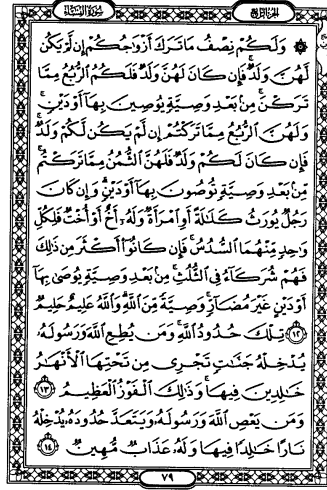 سُورَةُ النِّسَاءِ
الجزءُ الرَّابِعُ
۞ وَلَكُمْ نِصْفُ مَا تَرَكَ أَزْوَٰجُكُمْ إِن لَّمْ يَكُن
لَّهُنَّ وَلَدٌ فَإِن كَانَ لَهُنَّ وَلَدٌ فَلَكُمُ ٱلرُّبُعُ مِمَّا
تَرَكْنَ مِنۢ بَعْدِ وَصِيَّةٍ يُوصِينَ بِهَآ أَوْ دَيْنٍ
وَلَهُنَّ ٱلرُّبُعُ مِمَّا تَرَكْتُمْ إِن لَّمْ يَكُن لَّكُمْ وَلَدٌ
فَإِن كَانَ لَكُمْ وَلَدٌ فَلَهُنَّ ٱلثُّمُنُ مِمَّا تَرَكْتُم
مِّنۢ بَعْدِ وَصِيَّةٍ تُوصُونَ بِهَآ أَوْ دَيْنٍ وَإِن كَانَ
رَجُلٌ يُورَثُ كَلَٰلَةً أَوِ ٱمْرَأَةٌ وَلَهُۥٓ أَخٌ أَوْ أُخْتٌ فَلِكُلِّ
وَٰحِدٍ مِّنْهُمَا ٱلسُّدُسُ فَإِن كَانُوٓا۟ أَكْثَرَ مِن ذَٰلِكَ
فَهُمْ شُرَكَآءُ فِى ٱلثُّلُثِ مِنۢ بَعْدِ وَصِيَّةٍ يُوصَىٰ بِهَآ
أَوْ دَيْنٍ غَيْرَ مُضَآرٍّ وَصِيَّةً مِّنَ ٱللَّهِ وَٱللَّهُ عَلِيمٌ حَلِيمٌ
⑫ تِلْكَ حُدُودُ ٱللَّهِ وَمَن يُطِعِ ٱللَّهَ وَرَسُولَهُۥ
يُدْخِلْهُ جَنَّٰتٍ تَجْرِى مِن تَحْتِهَا ٱلْأَنْهَٰرُ
خَٰلِدِينَ فِيهَا وَذَٰلِكَ ٱلْفَوْزُ ٱلْعَظِيمُ ⑬
وَمَن يَعْصِ ٱللَّهَ وَرَسُولَهُۥ وَيَتَعَدَّ حُدُودَهُۥ يُدْخِلْهُ
نَارًا خَٰلِدًا فِيهَا وَلَهُۥ عَذَابٌ مُّهِينٌ ⑭
٧٩